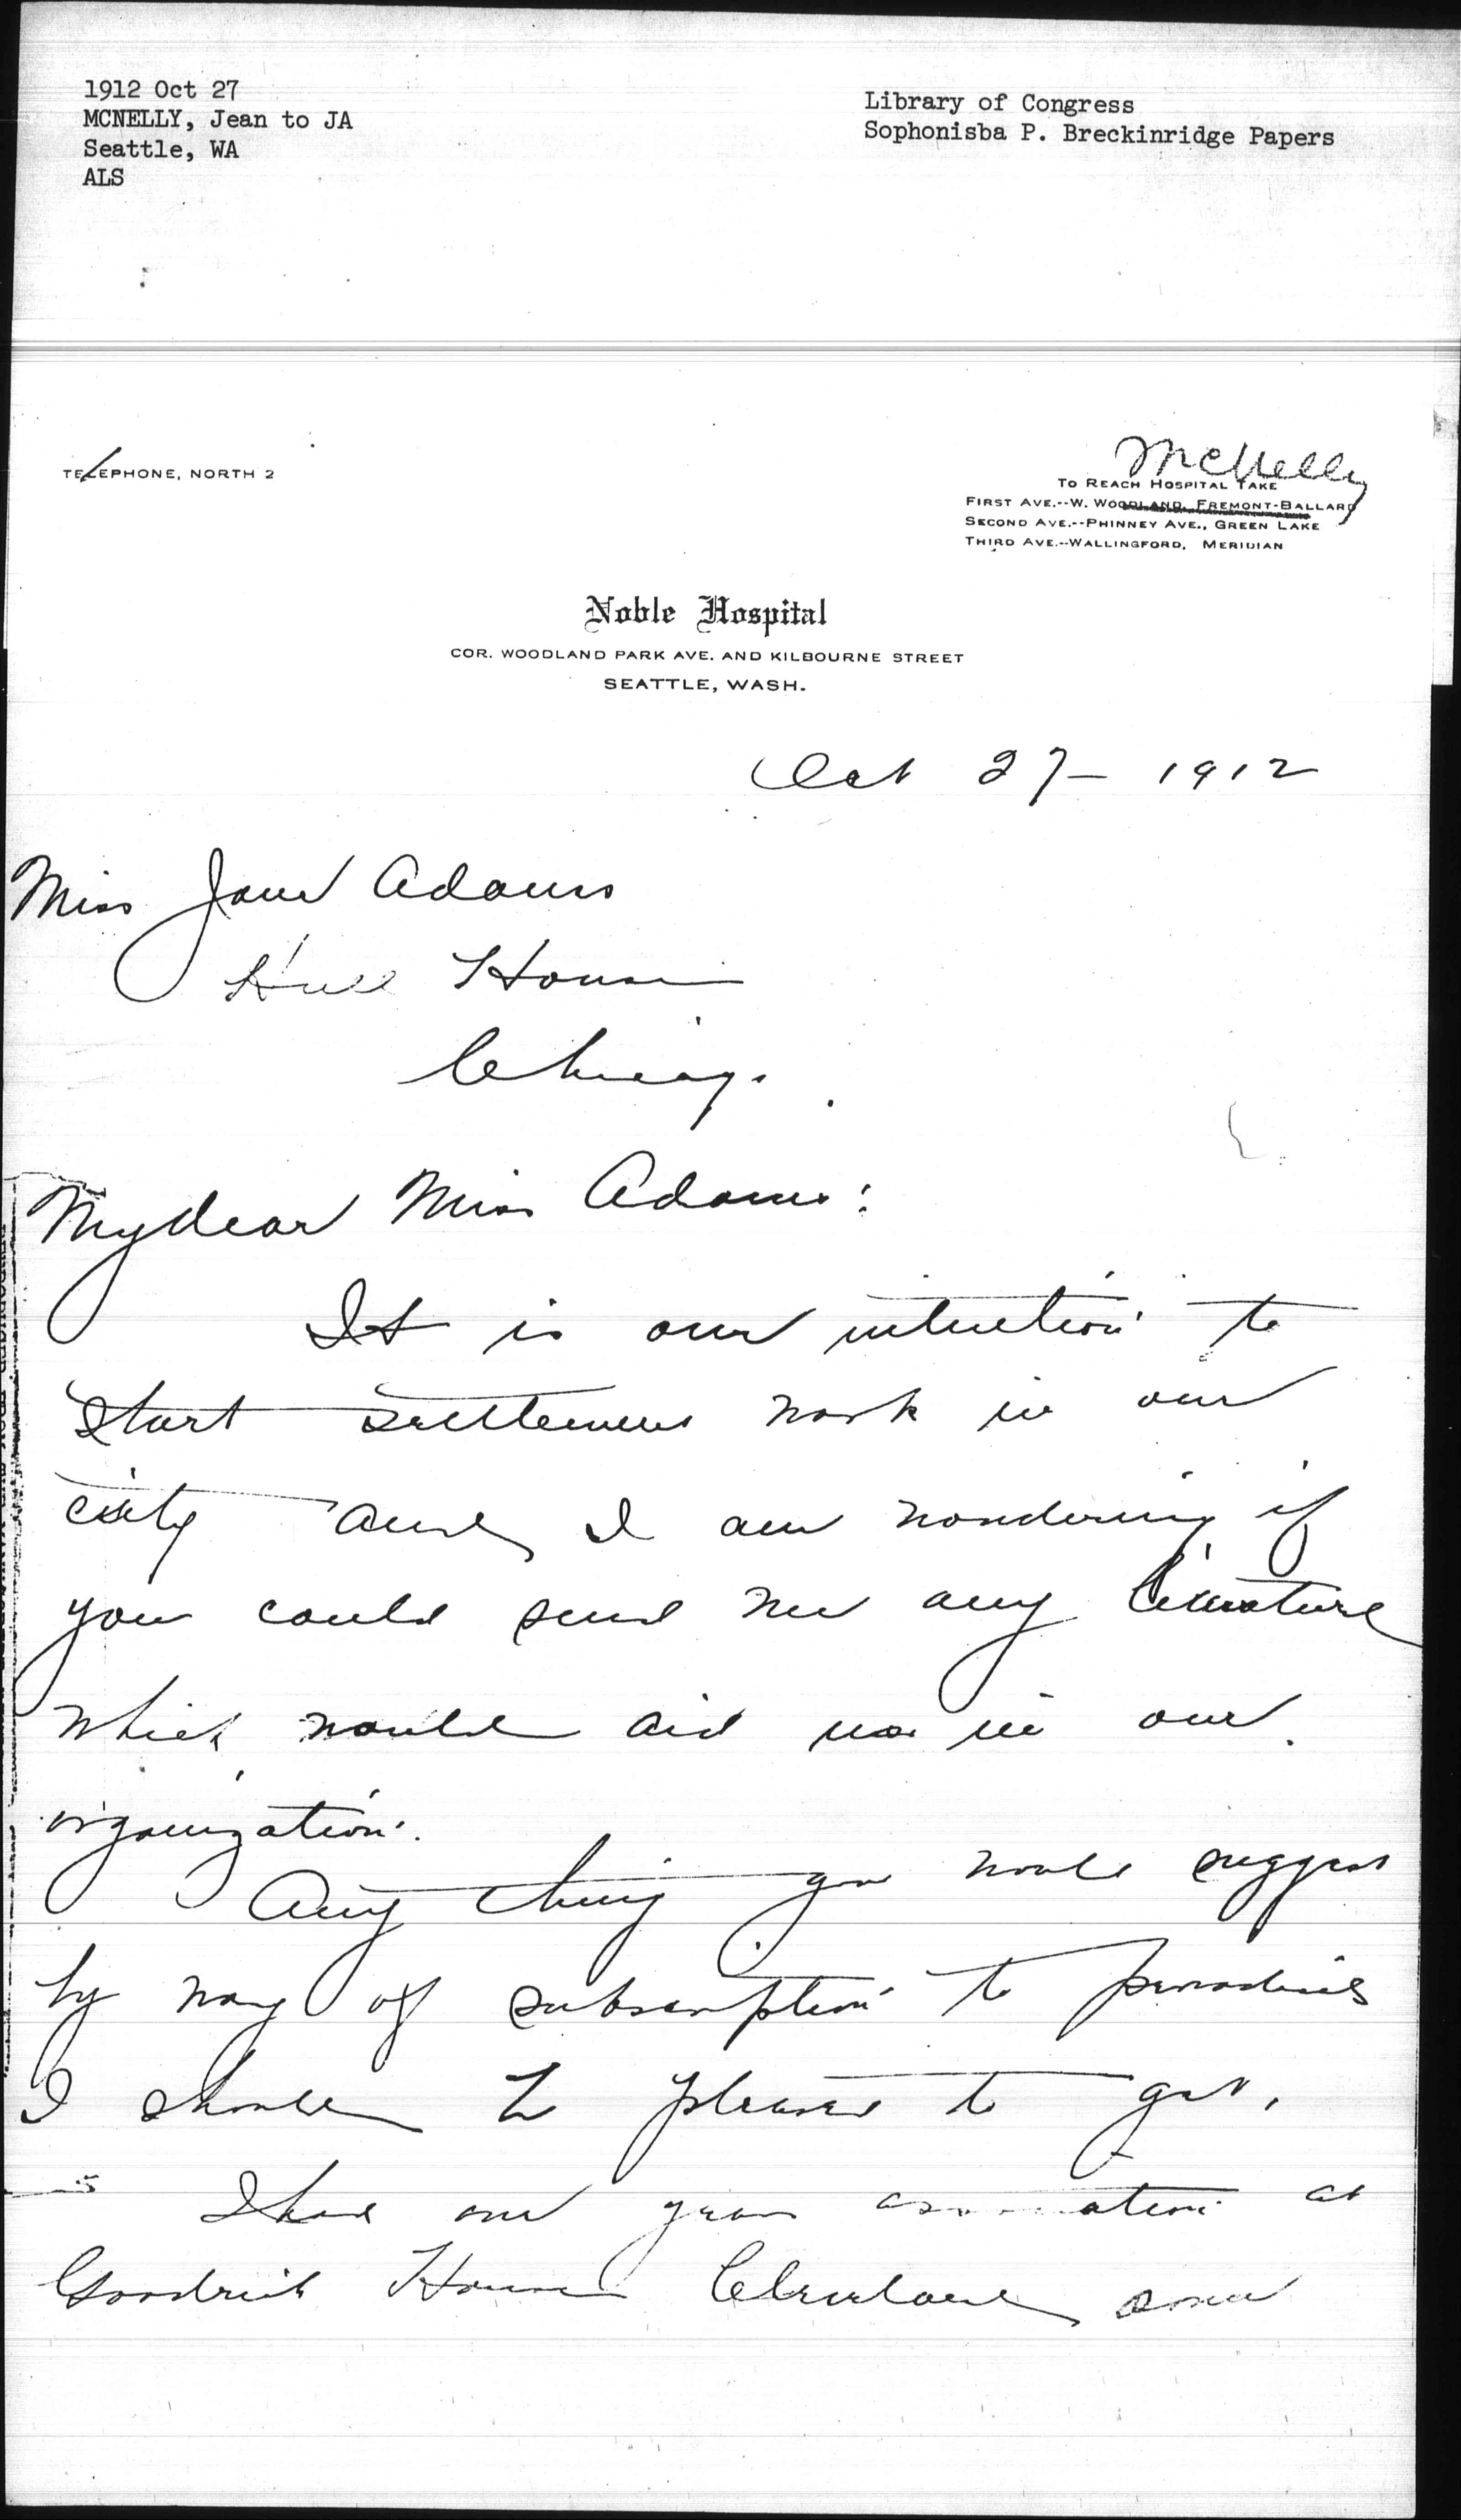 1912 Oct 27
MCNELLY, Jean to JA
Seattle, WA
ALS
Library of Congress
Sophonisba P. Breckinridge Papers
TELEPHONE, NORTH 2
McNelly
TO REACH HOSPITAL TAKE
FIRST AVE.--W. WOODLAND, FREMONT-BALLARD
SECOND AVE.--PHINNEY AVE., GREEN LAKE
THIRD AVE.--WALLINGFORD, MERIDIAN
Noble Hospital
COR. WOODLAND PARK AVE. AND KILBOURNE STREET
SEATTLE, WASH.
Oct 27 - 1912
Miss Jane Adams
Hull House
Chicago.
My dear Miss Adams:
It is our intention to
start settlement work in our
city and I am wondering if
you could send me any literature
which would aid us in our
organization.
Any thing you would suggest
by way of subscription to periodicals
I should be pleased to get.
I had one years association at
Goodrich House Cleveland some